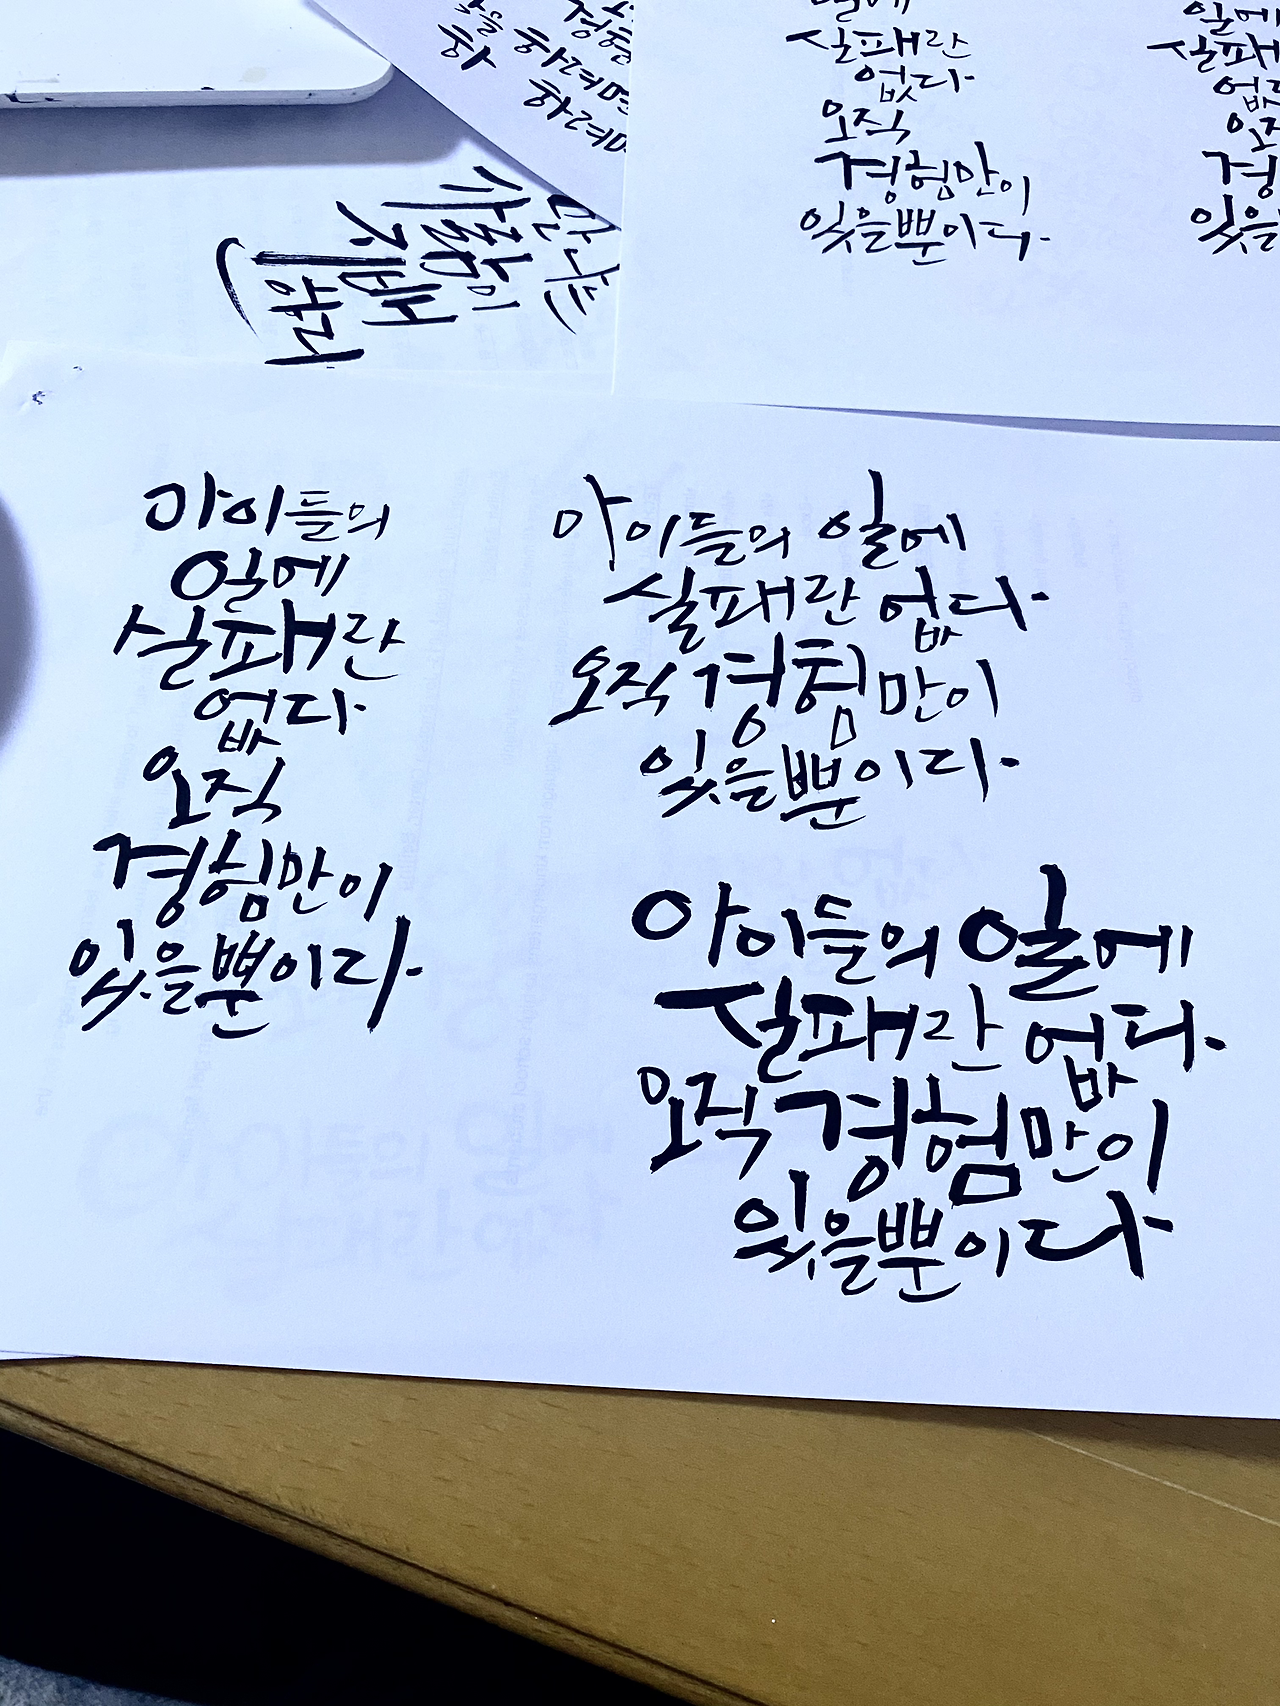 일에
실패란
없다
오직
경험만이
있을뿐이다.
일에
실패
없다
오직
경험
있을
경험
을 하려면
하 하려면
아이들의
일에
실패란
없다
오직
경험만이
있을뿐이다.
아이들의 일에
실패란 없다.
오직 경험만이
있을뿐이다.
아이들의 일에
실패란 없다.
오직 경험만이
있을뿐이다.